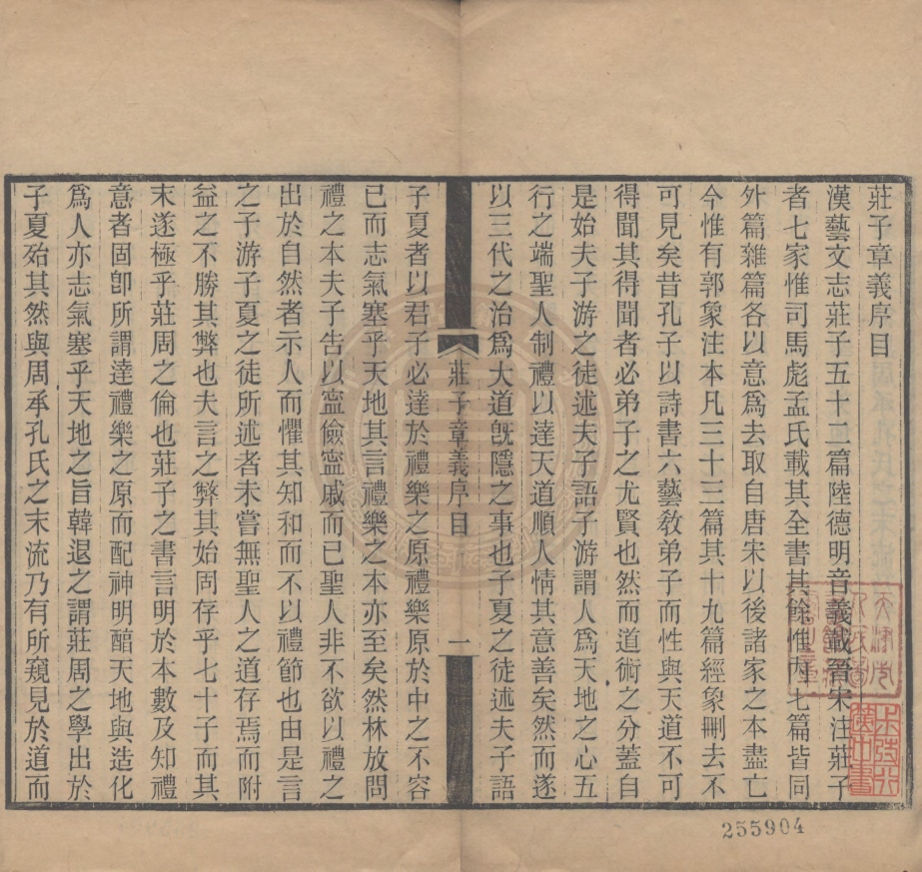 莊子章義序目
漢藝文志莊子五十二篇陸德明音義載晉宋注莊子
者七家惟司馬彪孟氏載其全書其餘惟內七篇皆同
外篇雜篇各以意爲去取自唐宋以後諸家之本盡亡
今惟有郭象注本凡三十三篇其十九篇經象刪去不
可見矣昔孔子以詩書六藝敎弟子而性與天道不可
得聞其得聞者必弟子之尤賢也然而道術之分蓋自
是始夫子游之徒述夫子語子游謂人爲天地之心五
行之端聖人制禮以達天道順人情其意善矣然而遂
以三代之治爲大道旣隱之事也子夏之徒述夫子語
莊子章義序目
一
子夏者以君子必達於禮樂之原禮樂原於中之不容
已而志氣塞乎天地其言禮樂之本亦至矣然林放問
禮之本夫子告以寍儉寍戚而已聖人非不欲以禮之
出於自然者示人而懼其知和而不以禮節也由是言
之子游子夏之徒所述者未嘗無聖人之道存焉而附
益之不勝其弊也夫言之弊其始固存乎七十子而其
末遂極乎莊周之倫也莊子之書言明於本數及知禮
意者固卽所謂達禮樂之原而配神明醇天地與造化
爲人亦志氣塞乎天地之旨韓退之謂莊周之學出於
子夏殆其然與周承孔氏之末流乃有所窺見於道而
255904